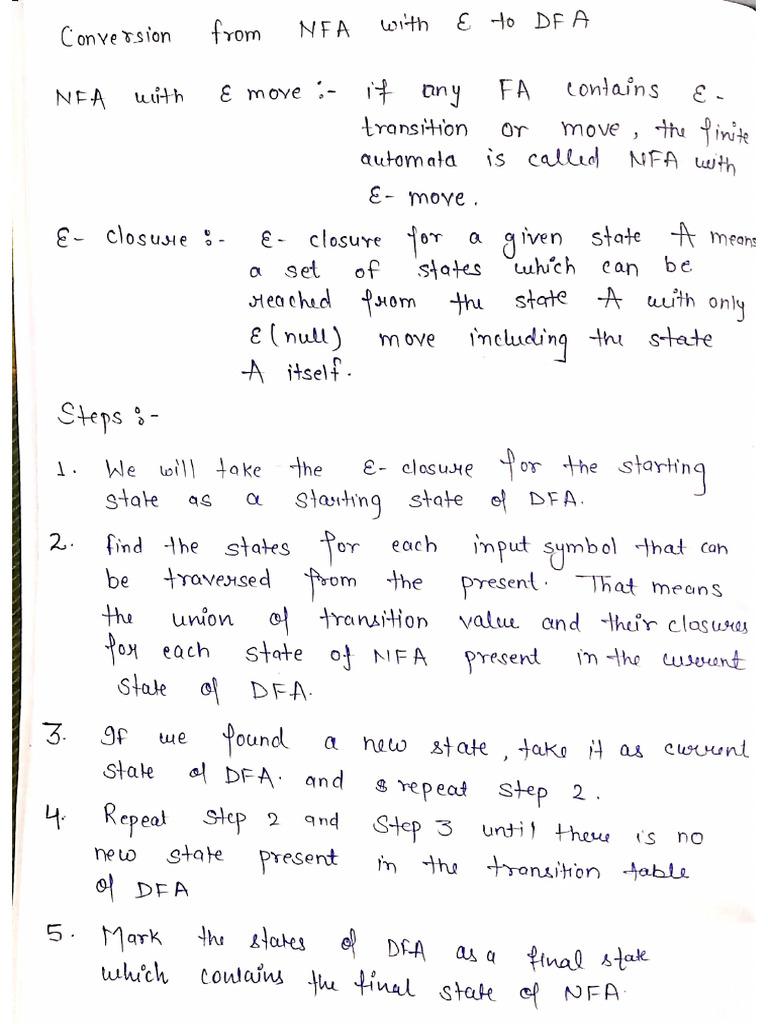 Conversion from NFA with ε to DFA
NFA with ε move :- if any FA contains ε-
transition or move, the finite
automata is called NFA with
ε- move.
ε- closure :- ε- closure for a given state A means
a set of states which can be
reached from the state A with only
ε (null) move including the state
A itself.
Steps :-
1. We will take the ε- closure for the starting
state as a starting state of DFA.
2. find the states for each input symbol that can
be traversed from the present. That means
the union of transition value and their closures
for each state of NFA present in the current
state of DFA.
3. If we found a new state, take it as current
state of DFA. and repeat step 2.
4. Repeat step 2 and step 3 until there is no
new state present in the transition table
of DFA
5. Mark the states of DFA as a final state
which contains the final state of NFA.